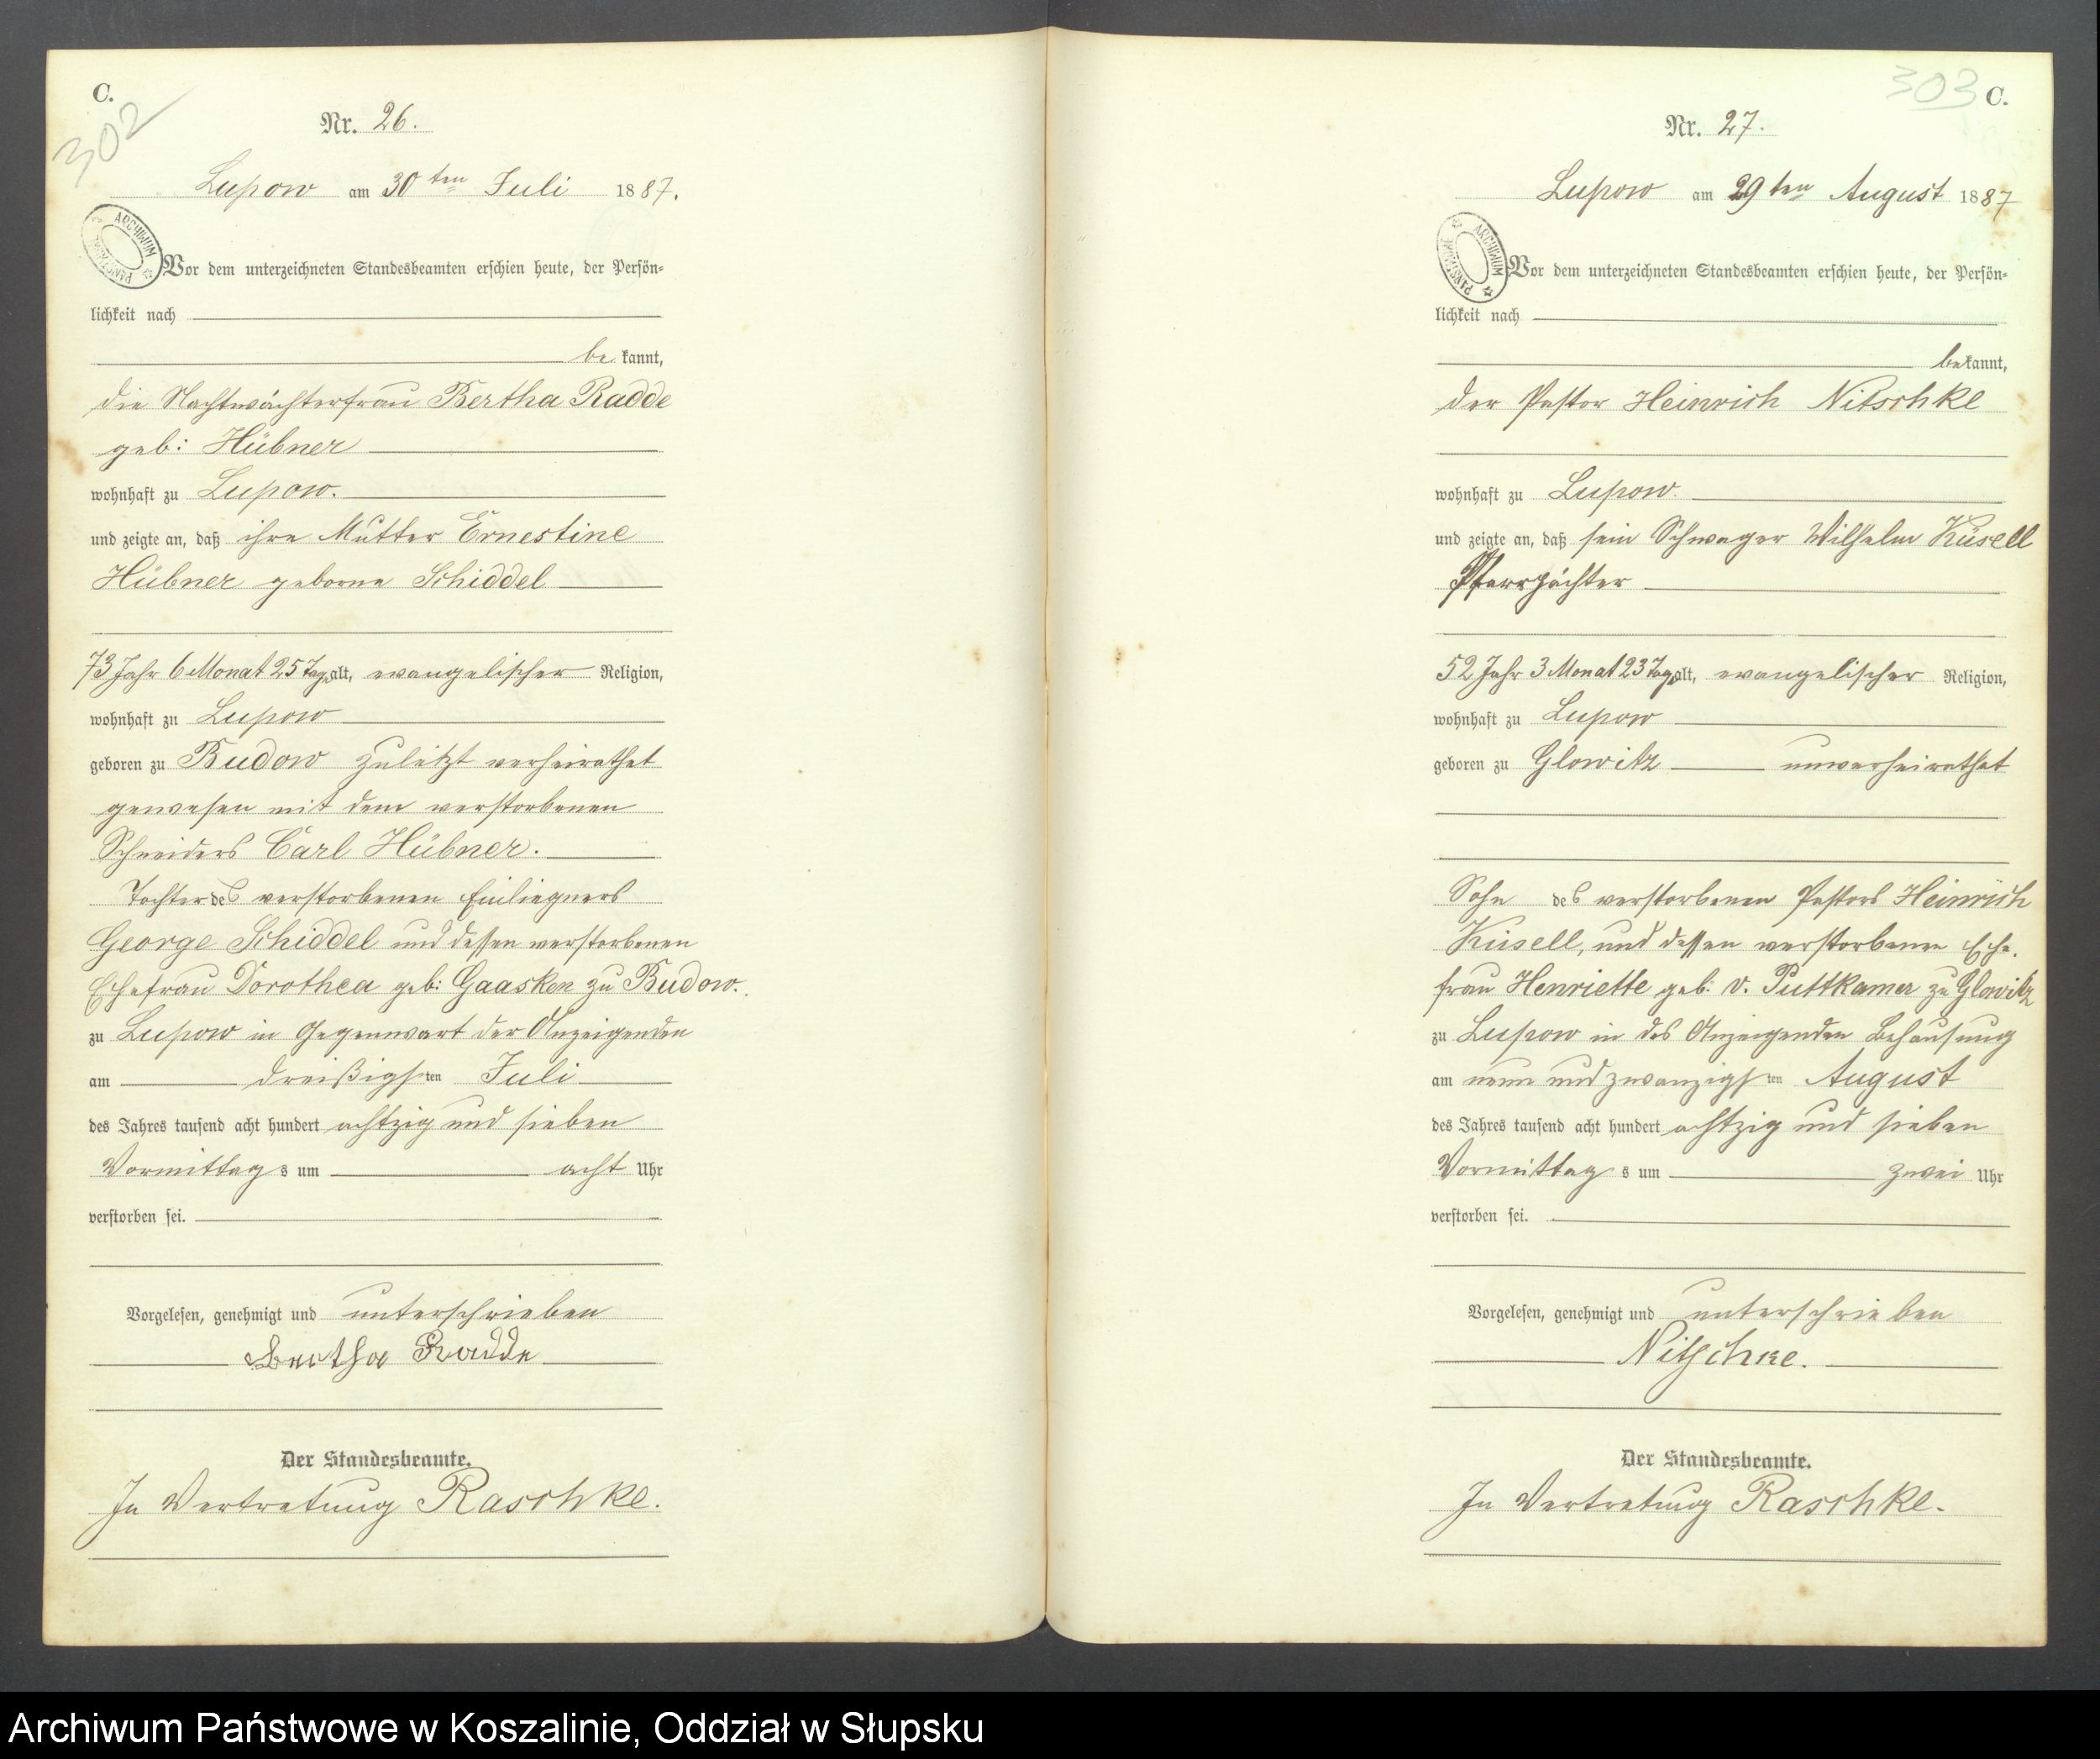 C.
302
Nr. 26.
Lupow am 30ten Juli 1887.
ARCHIWUM PAŃSTWOWE
Vor dem unterzeichneten Standesbeamten erschien heute, der Persön-
lichkeit nach
be kannt,
die Nachtwächterfrau Bertha Radde
geb: Hübner
wohnhaft zu Lupow.
und zeigte an, daß ihre Mutter Ernestine
Hübner geborne Schiddel
73 Jahr 6 Monat 25 Tag alt, evangelischer Religion,
wohnhaft zu Lupow
geboren zu Budow zuletzt verheirathet
gewesen mit dem verstorbenen
Schneiders Carl Hübner.
Tochter des verstorbenen Einliegners
George Schiddel und dessen verstorbenen
Ehefrau Dorothea geb: Gaasken zu Budow.
zu Lupow in Gegenwart der Anzeigenden
am dreißigsten Juli
des Jahres tausend acht hundert achtzig und sieben
Vormittags um acht Uhr
verstorben sei.
Vorgelesen, genehmigt und unterschrieben
Bertha Radde
Der Standesbeamte.
In Vertretung Raschke.
303 C.
Nr. 27.
Lupow am 29ten August 1887
ARCHIWUM PAŃSTWOWE
Vor dem unterzeichneten Standesbeamten erschien heute, der Persön-
lichkeit nach
bekannt,
der Pastor Heinrich Nitschke
wohnhaft zu Lupow.
und zeigte an, daß sein Schwager Wilhelm Küsell
Pfarrpächter
52 Jahr 3 Monat 23 Tag alt, evangelischer Religion,
wohnhaft zu Lupow
geboren zu Glowitz unverheirathet
Sohn des verstorbenen Pastors Heinrich
Küsell, und dessen verstorbenen Ehe-
frau Henriette geb: v. Puttkamer zu Glowitz
zu Lupow in des Anzeigenden Behausung
am neun und zwanzigsten August
des Jahres tausend acht hundert achtzig und sieben
Vormittags um zwei Uhr
verstorben sei.
Vorgelesen, genehmigt und unterschrieben
Nitschke.
Der Standesbeamte.
In Vertretung Raschke.
Archiwum Państwowe w Koszalinie, Oddział w Słupsku